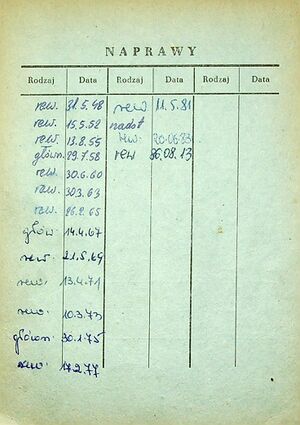 NAPRAWY
Rodzaj Data Rodzaj Data Rodzaj Data
rew. 31.5.48 rew 11.5.81
rew. 15.5.52 nadot
rew. 13.8.55 rew. 20.06.83
główn. 29.7.58 rew 26.08.13
rew. 30.6.60
rew. 30.3.63
rew. 26.2.65
głów. 14.4.67
rew. 21.5.69
rew. 13.4.71
rew. 10.3.73
główn. 30.1.75
rew. 17.2.77